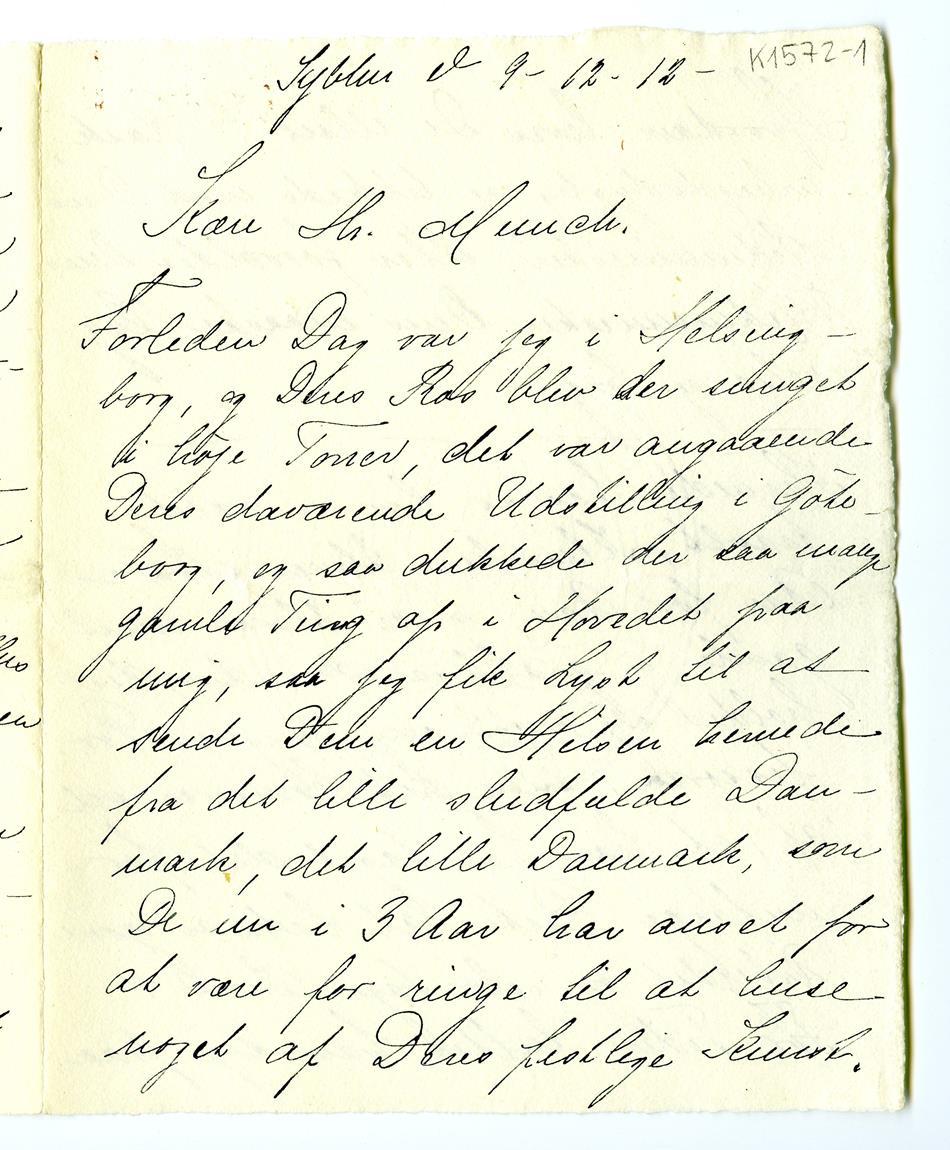 K1572-1
d 9-12-12-
Kære Hr. Munch.
Forleden Dag var jeg i Helsing-
borg, og Deres Ros blev der sunget
i høje Toner, det var angaaende
Deres daværende Udstilling i Göte-
borg, og saa dukkede der saa mange
gamle Ting op i Hovedet paa
mig, saa jeg fik Lyst til at
sende Dem en Hilsen hernede
fra det lille sludfulde Dan-
mark, det lille Danmark, som
De nu i 3 Aar har anset for
at være for ringe til at huse
noget af Deres festlige Kunst.